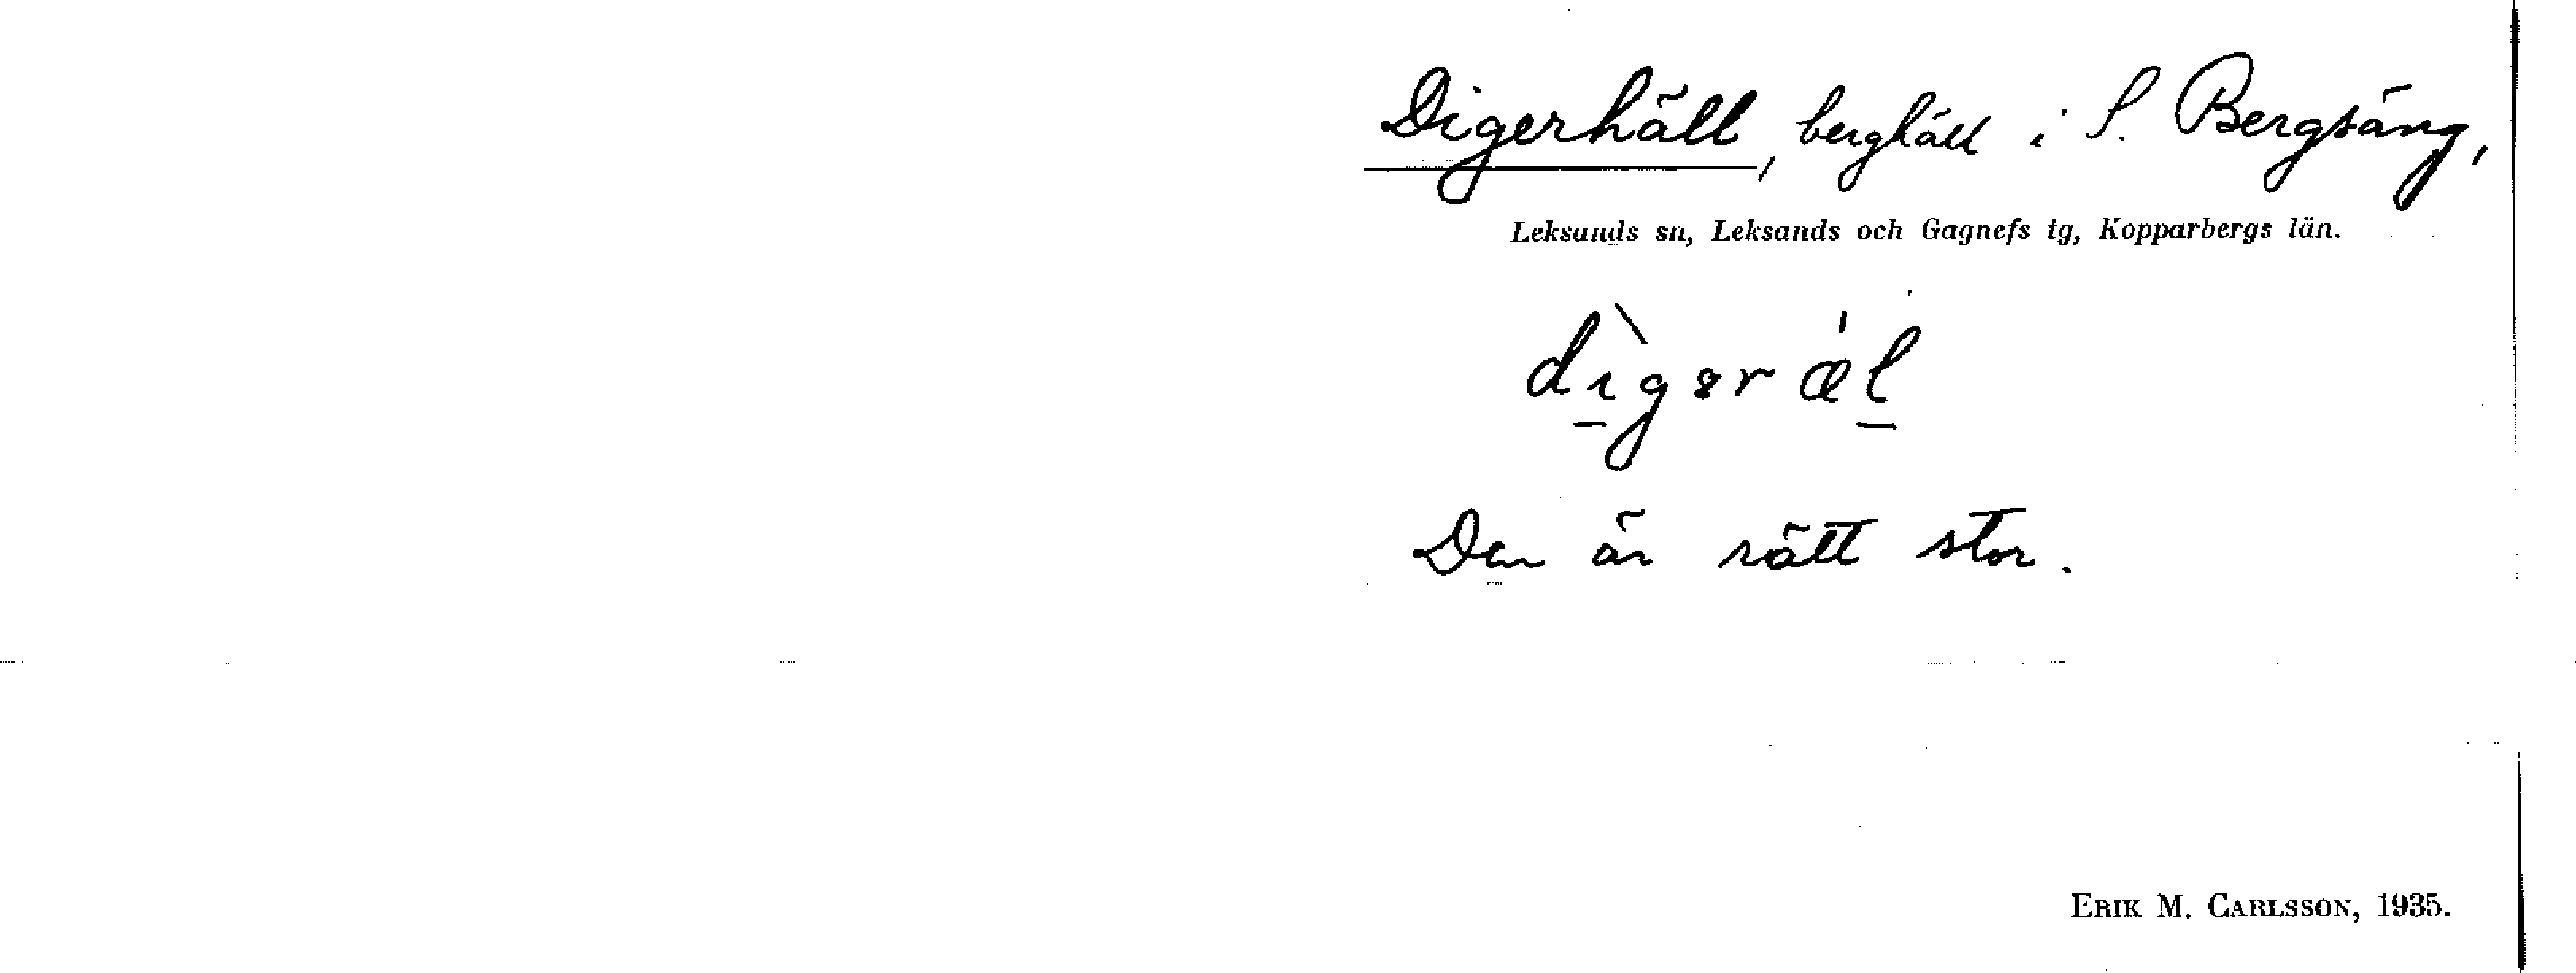 Digerhäll, berghäll i S. Bergsäng,
Leksands sn, Leksands och Gagnefs tg, Kopparbergs län.
dìgərǽl
Den är rätt stor.
ERIK M. CARLSSON, 1935.